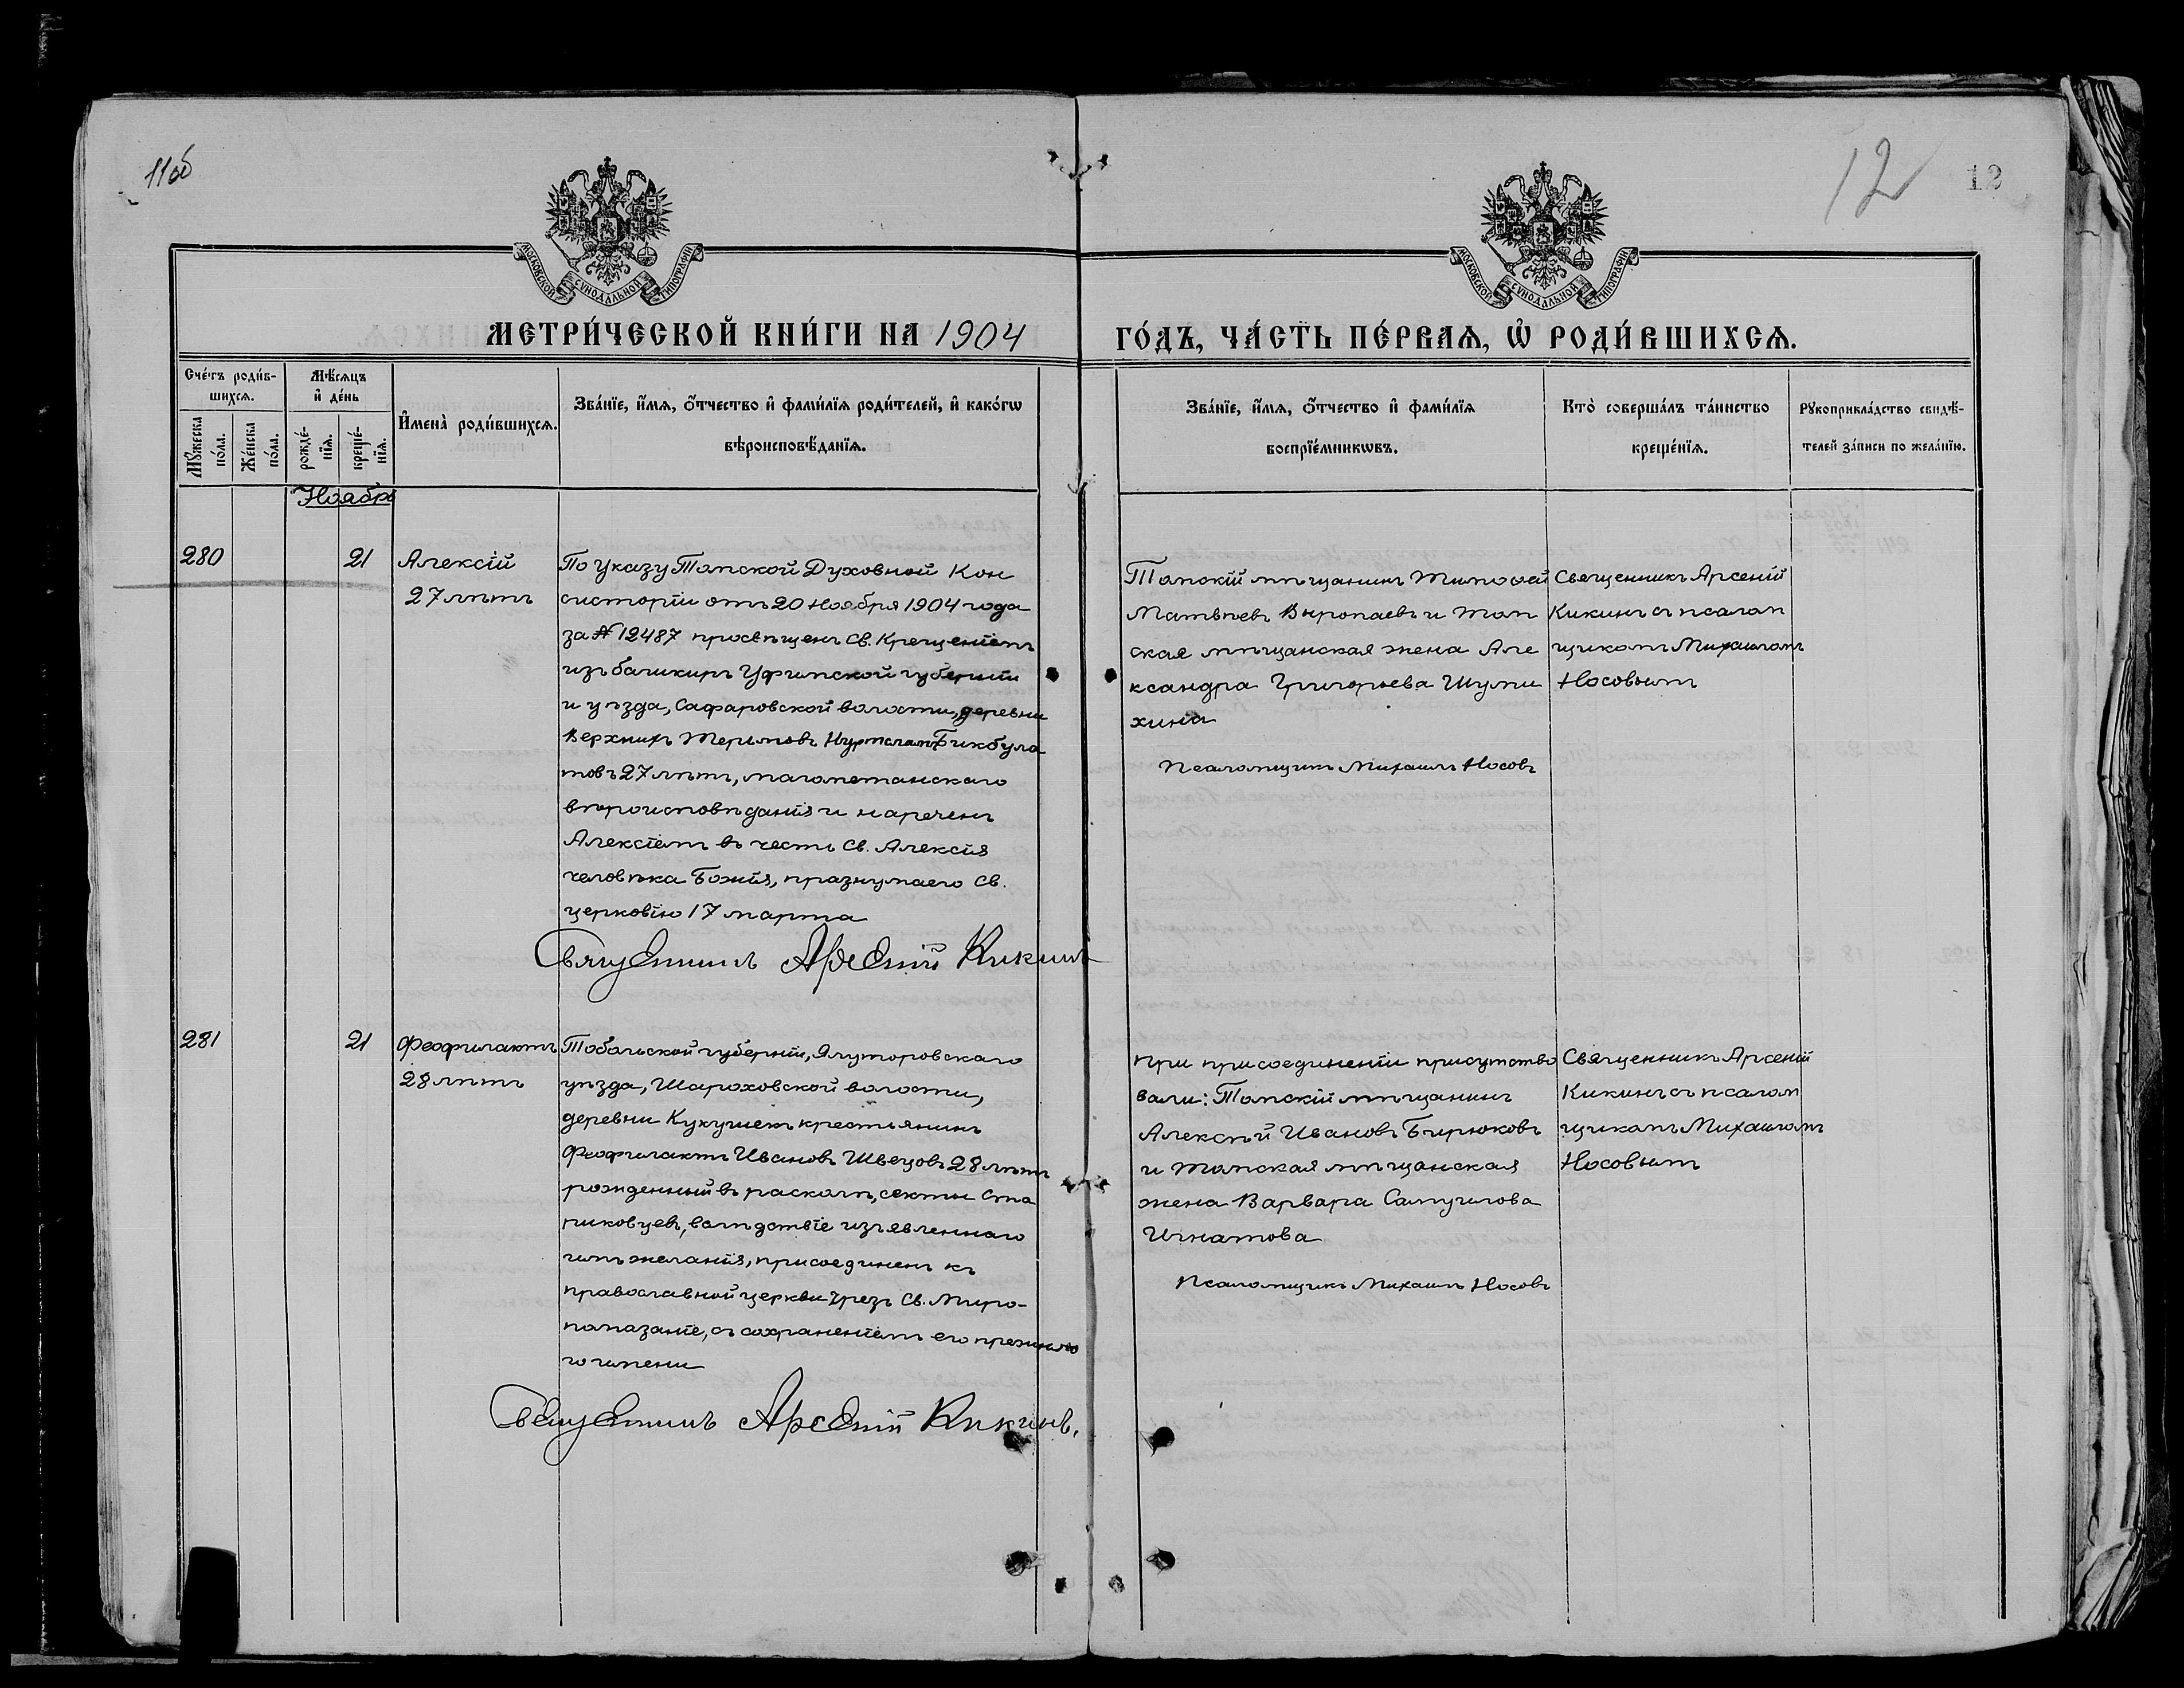 11об
12
12
МОСКОВСКОЙ СѴНОДАЛЬНОЙ ТИПОГРАФІИ
МОСКОВСКОЙ СѴНОДАЛЬНОЙ ТИПОГРАФІИ
МЕТРИ́ЧЕСКОЙ КНИ́ГИ НА 1904
ГО́ДЪ, ЧА́СТЬ ПЕ́РВАѦ, Ѡ҆ РОДИ́ВШИХСѦ.
Сче́тъ роди́в-
шихсѧ.
Мꙋ́жеска
по́ла.
Же́нска
по́ла.
Мѣ́сѧцъ
и҆ де́нь
рожде́-
нїѧ.
креще́-
нїѧ.
И҆мена̀ роди́вшихсѧ.
Зва́нїе, и҆́мѧ, ѻ҆́тчество и҆ фами́лїѧ роди́телей, и҆ како́гѡ
вѣроисповѣ́данїѧ.
Зва́нїе, и҆́мѧ, ѻ҆́тчество и҆ фами́лїѧ
воспрїе́мникѡвъ.
Кто̀ соверша́лъ та́инство
креще́нїѧ.
Рꙋкоприкла́дство свидѣ́-
телей за́писи по жела́нїю.
Ноябрь
280
21
Алексій
27 лѣтъ
По указу Томской Духовной Кон
систоріи отъ 20 Ноября 1904 года
за № 12487 просвѣщенъ Св. Крещеніемъ
изъ башкиръ Уфимской губерніи
и уѣзда, Сафаровской волости, деревни
Верхнихъ Термовъ Нурисламъ Бикбула
товъ 27 лѣтъ, магометанскаго
вѣроисповѣданія и нареченъ
Алексіемъ въ честь Св. Алексія
человѣка Божія, празнумаего Св.
церковію 17 марта
Священникъ Арсеній Кикинъ
Томскій мѣщанинъ Тимоѳей
Матвѣевъ Выропаевъ и том
ская мѣщанская жена Але
ксандра Григорьева Шуми
хина
Псаломщикъ Михаилъ Носовъ
Священникъ Арсеній
Кикинъ съ псалом
щикомъ Михаиломъ
Носовымъ
281
21
Феофилактъ
28 лѣтъ
Тобольской губерніи, Ялуторовскаго
уѣзда, Шароховской волости,
деревни Кукушекъ крестьянинъ
Феофилактъ Ивановъ Швецовъ 28 лѣтъ
рожденный въ расколѣ, секты ста
риковцевъ, вслѣдствіе изъявленнаго
имъ желанія, присоединенъ къ
православной церкви чрезъ Св. Миро-
помазаніе, съ сохраненіемъ его прежняго
го имени
Священникъ Арсеній Кикинъ.
При присоединеніи присутство
вали: Томскій мѣщанинъ
Алексѣй Ивановъ Бирюковъ
и томская мѣщанская
жена Варвара Самуилова
Игнатова
Псаломщикъ Михаилъ Носовъ
Священникъ Арсеній
Кикинъ съ псалом
щикомъ Михаиломъ
Носовымъ